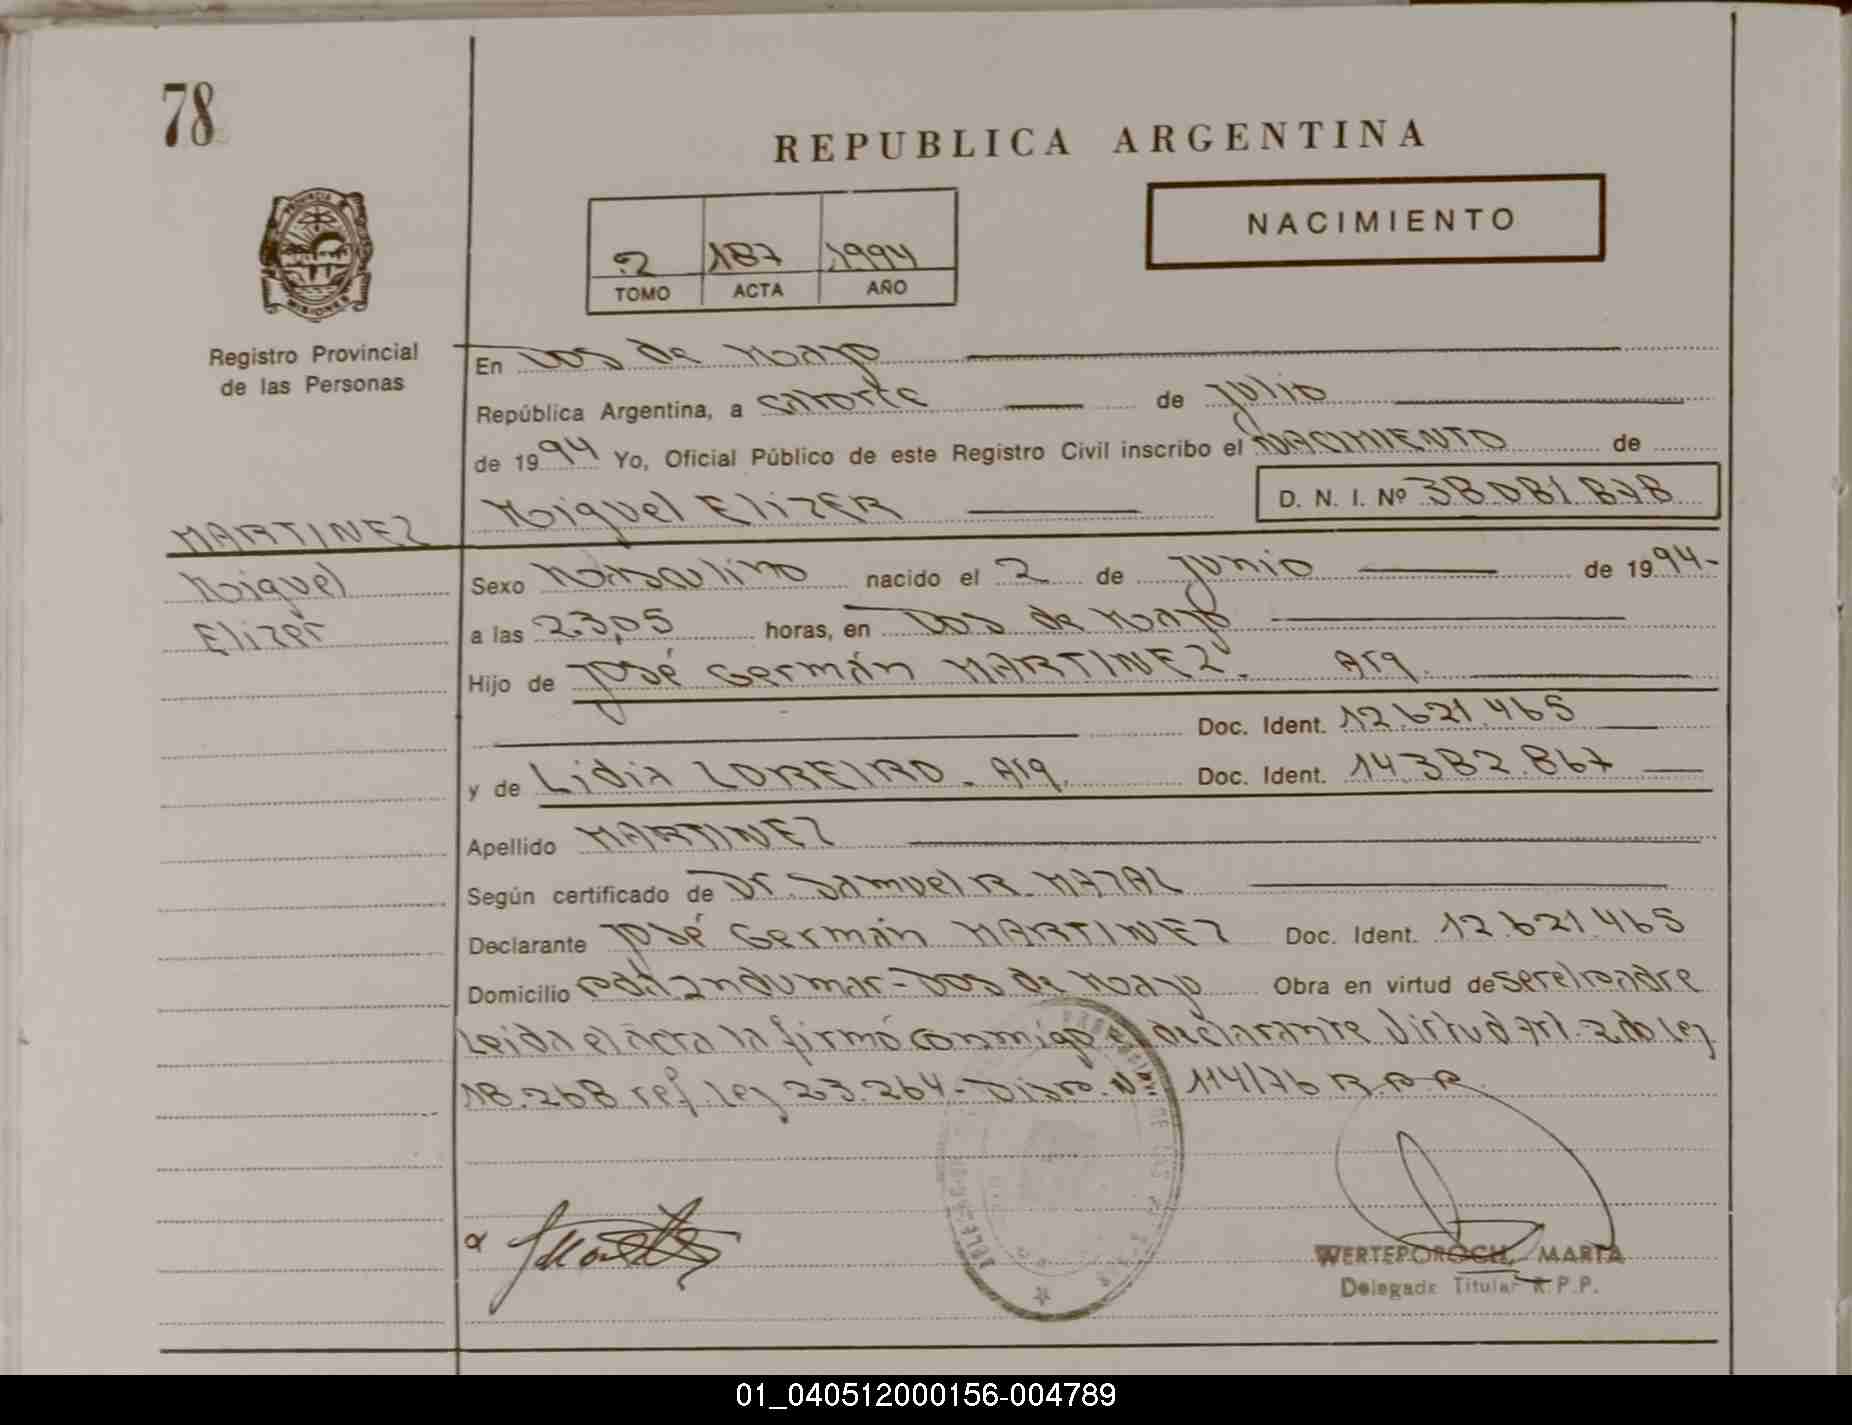 78
REPUBLICA ARGENTINA
NACIMIENTO
2 187 1994
TOMO ACTA AÑO
PROVINCIA DE MISIONES
Registro Provincial
de las Personas
En Dos de Mayo
República Argentina, a catorce de julio
de 1994 Yo, Oficial Público de este Registro Civil inscribo el NACIMIENTO de
Miguel ELIZER D. N. I. Nº 38 081 878
MARTINEZ
Miguel
Elizer
Sexo Masculino nacido el 2 de junio de 1994-
a las 23,05 horas, en Dos de Mayo
Hijo de José Germán MARTINEZ. Arg.
Doc. Ident. 12.621.465
y de Lidia LOREIRO. Arg. Doc. Ident. 14.382.867
Apellido MARTINEZ
Según certificado de Dr. Samuel R. MAZAL
Declarante José Germán MARTINEZ Doc. Ident. 12.621.465
Domicilio - Dos de Mayo Obra en virtud de ser el padre
Leida el acta la firmó conmigo el declarante Virtud Art. 2do Ley
18.268 ref. Ley 23.264. Dispo. Nº 114/76 R.P.P.
WERTEPOROCH, MARTA
Delegada Titular R.P.P.
01_040512000156-004789